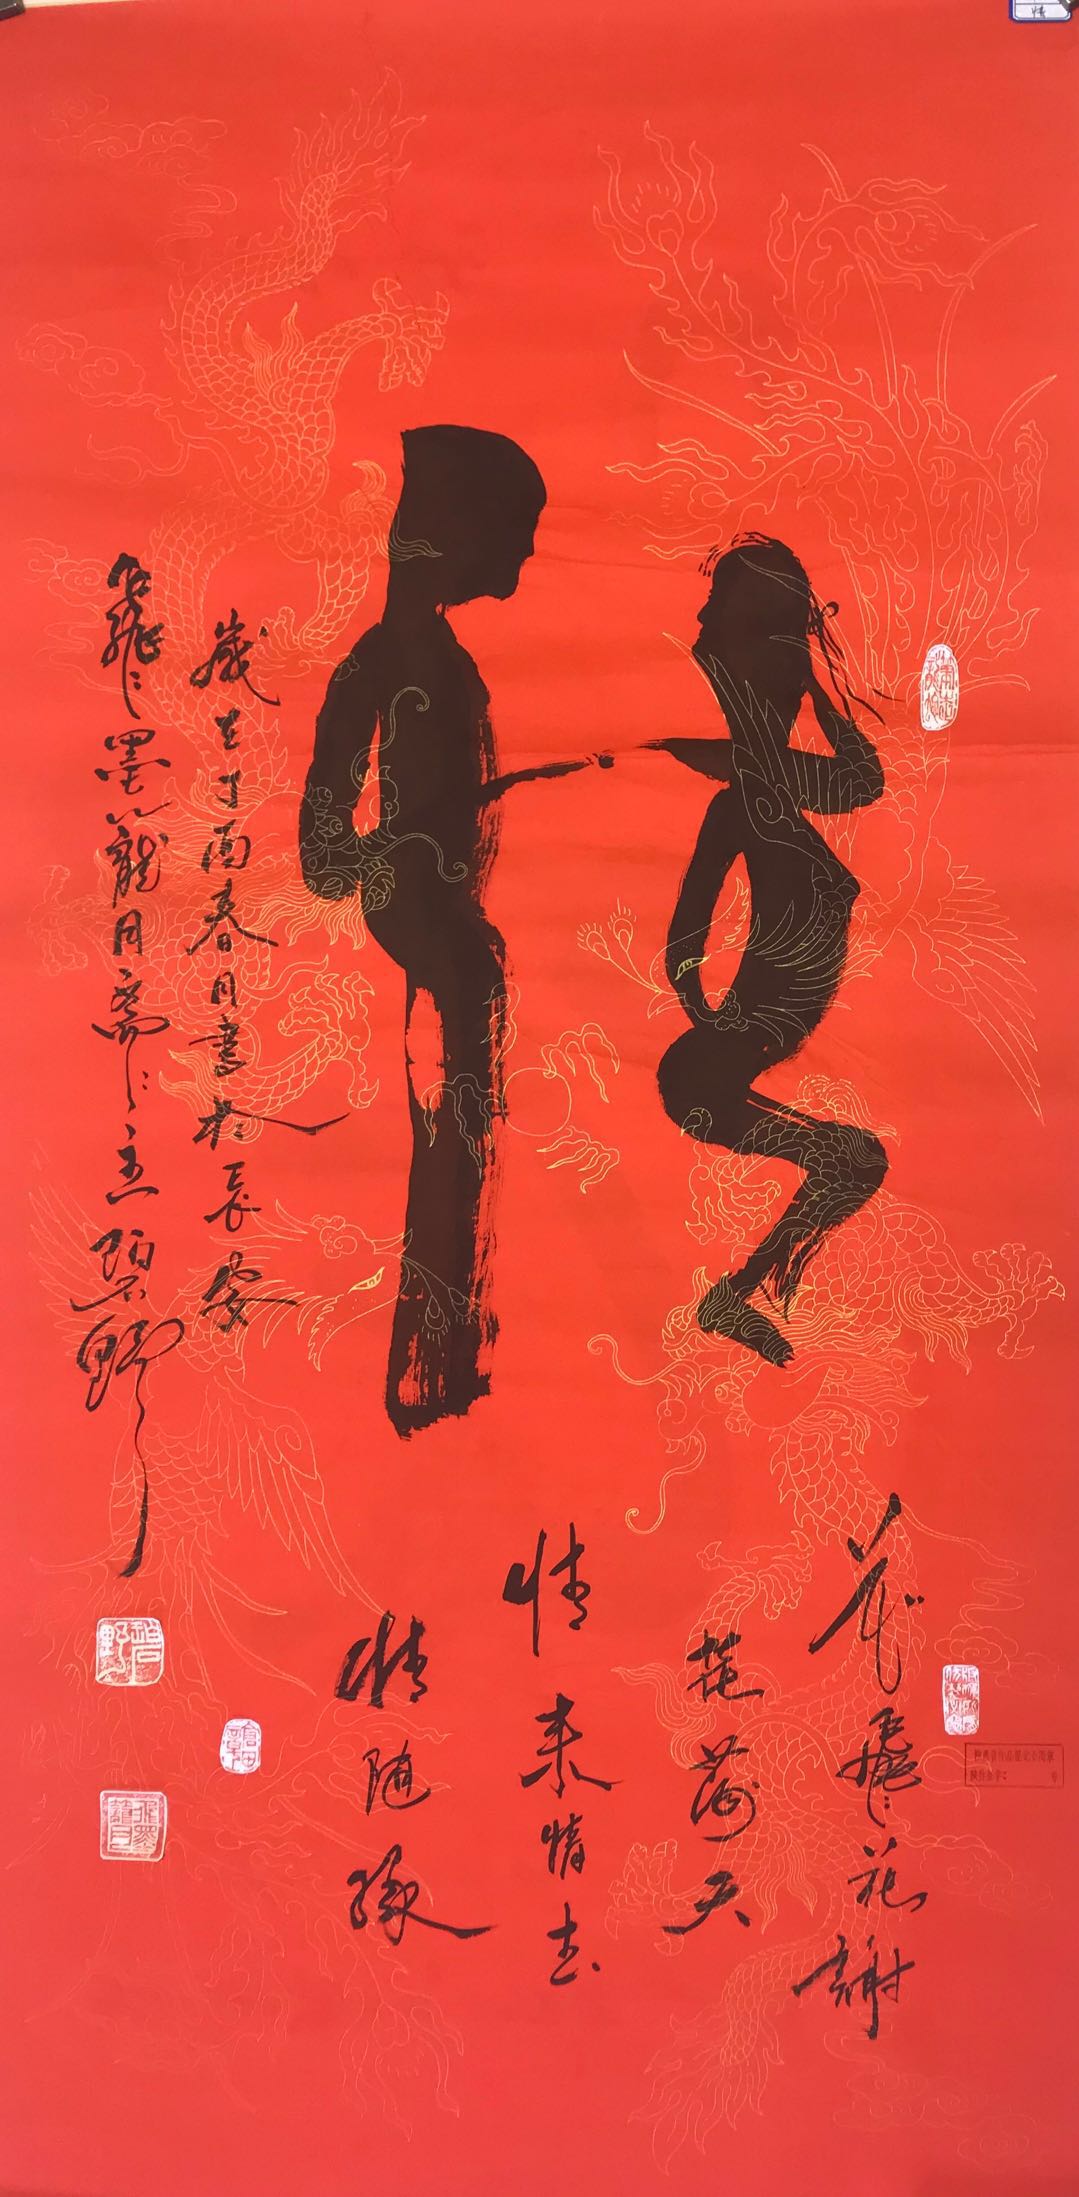 花飛花謝
花滿天
情来情去
情随缘
歲在丁酉春月書於長安
飛墨龍月齋主碧野
情